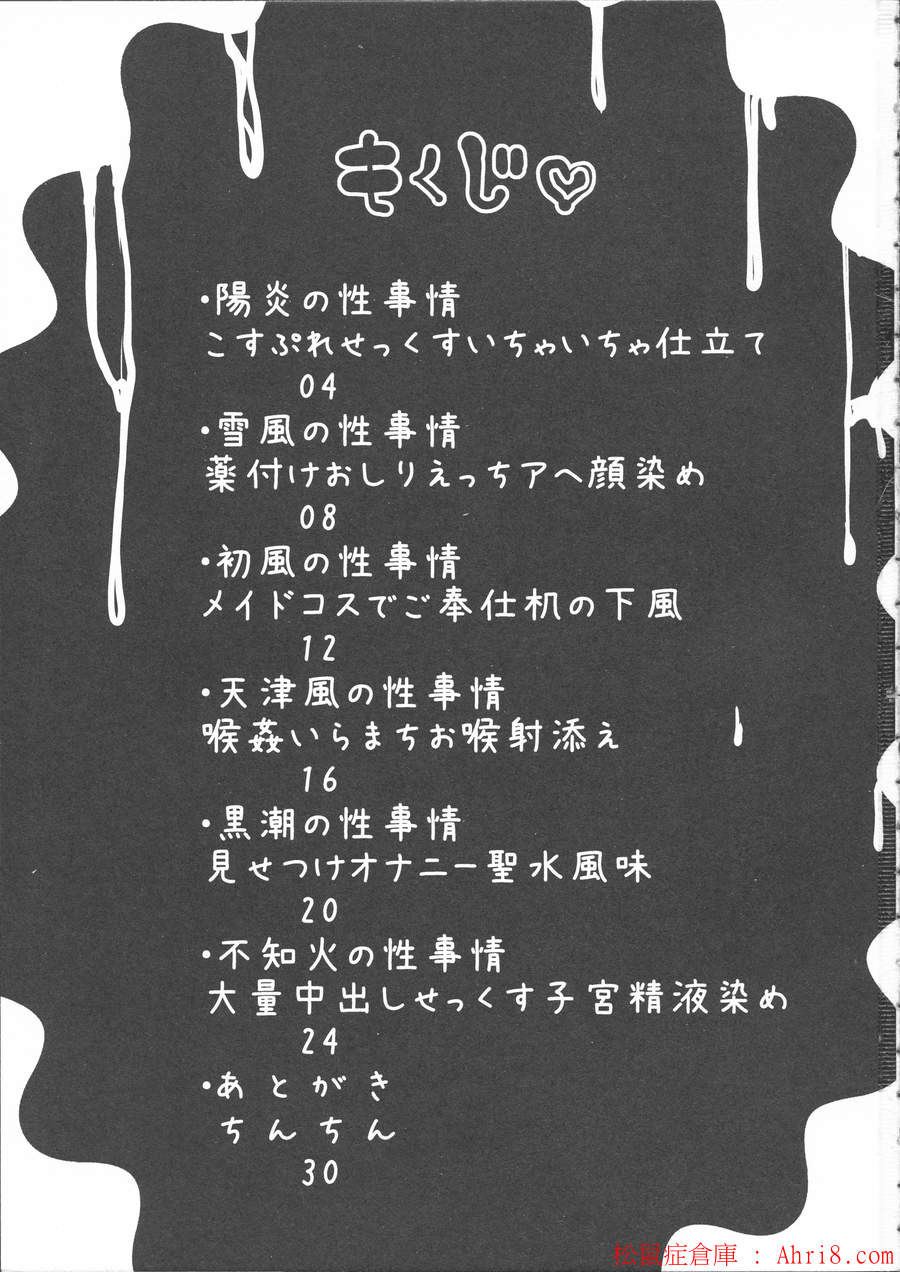 もくじ♡
・陽炎の性事情
こすぷれせっくすいちゃいちゃ仕立て
04
・雪風の性事情
薬付けおしりえっちアヘ顔染め
08
・初風の性事情
メイドコスでご奉仕机の下風
12
・天津風の性事情
喉姦いらまちお喉射添え
16
・黒潮の性事情
見せつけオナニー聖水風味
20
・不知火の性事情
大量中出しせっくす子宮精液染め
24
・あとがき
ちんちん
30
松鼠症倉庫 : Ahri8.com